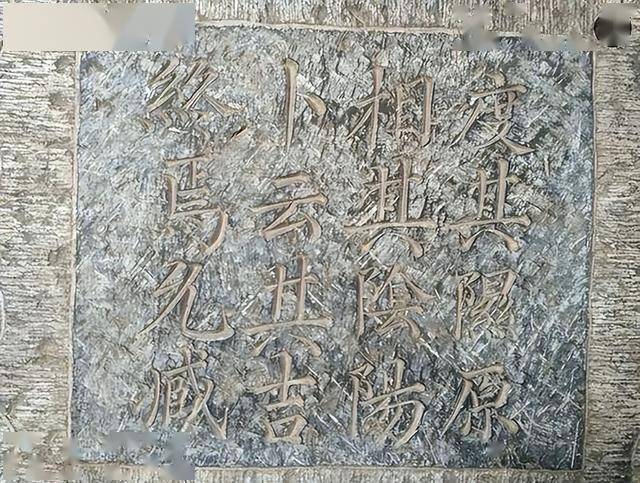 度其隰原
相其陰陽
卜云其吉
終焉允臧